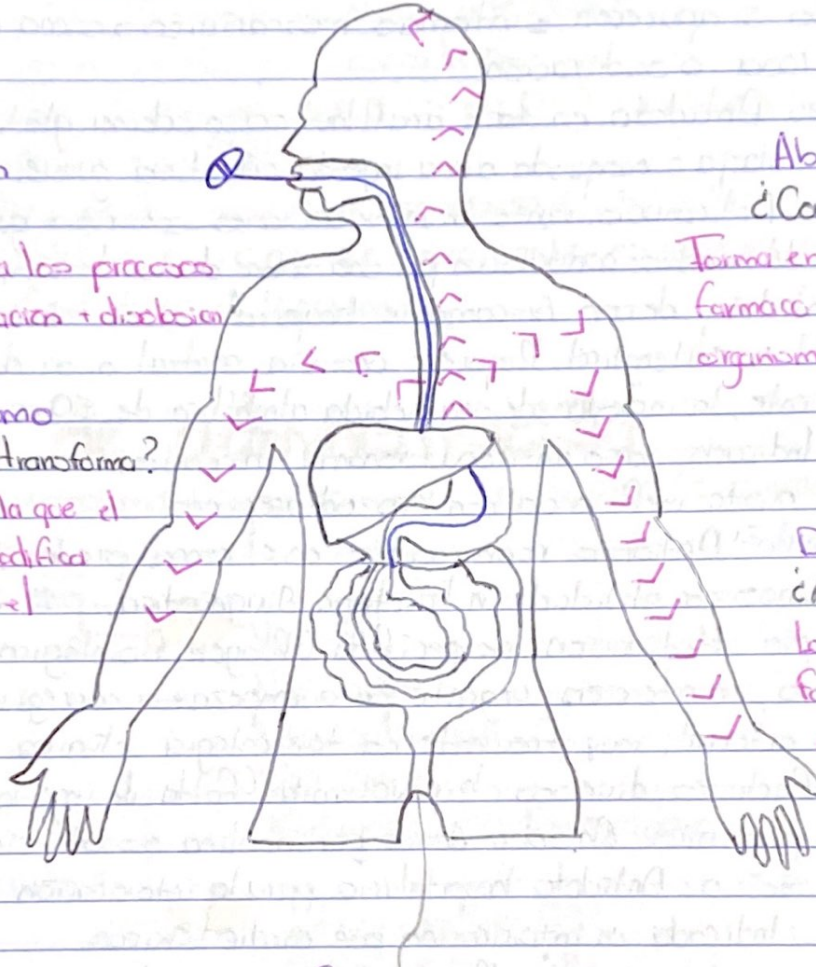 a los procesos
ación + disolosion
mo
transforma?
la que el
odifica
el
Ab
¿Co
Forma en
farmaco
organism
D
¿
La
fo